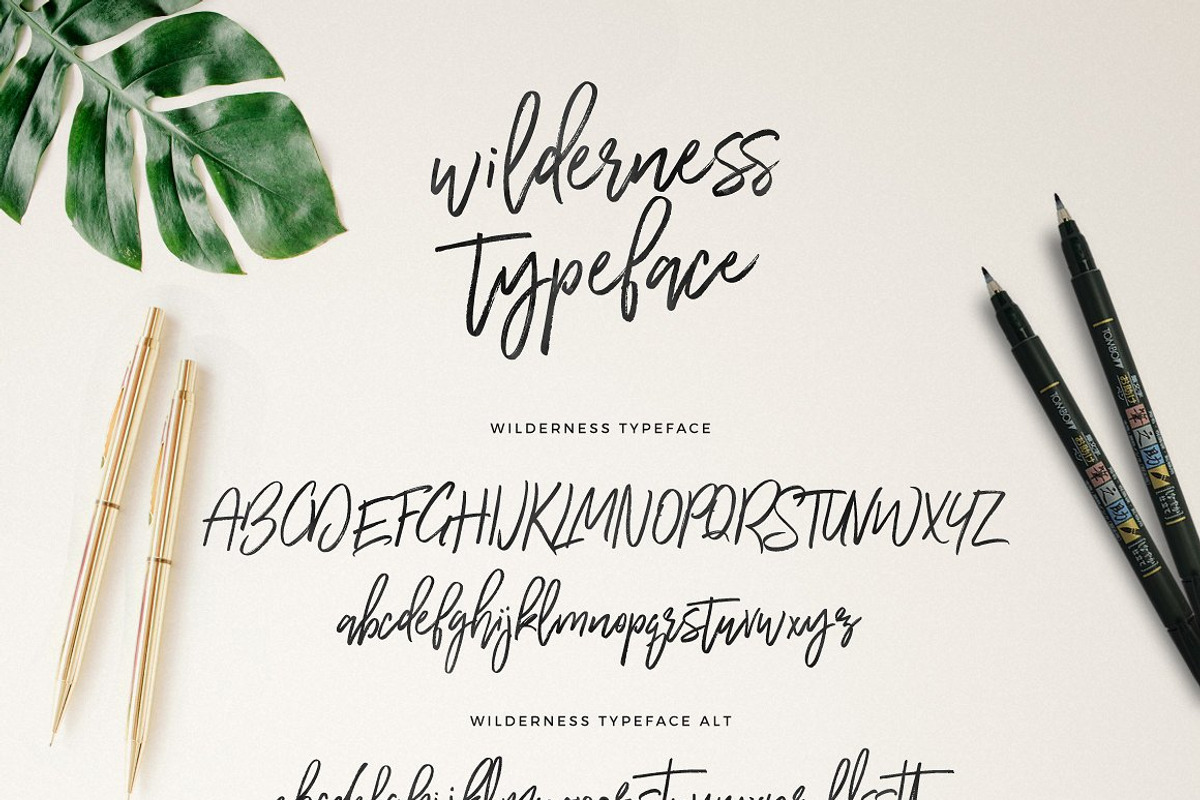 wilderness
typeface
WILDERNESS TYPEFACE
ABCDEFGHIJKLMNOPQRSTUVWXYZ
abcdefghijklmnopqrstuvwxyz
WILDERNESS TYPEFACE ALT
TOMBOW
TOMBOW